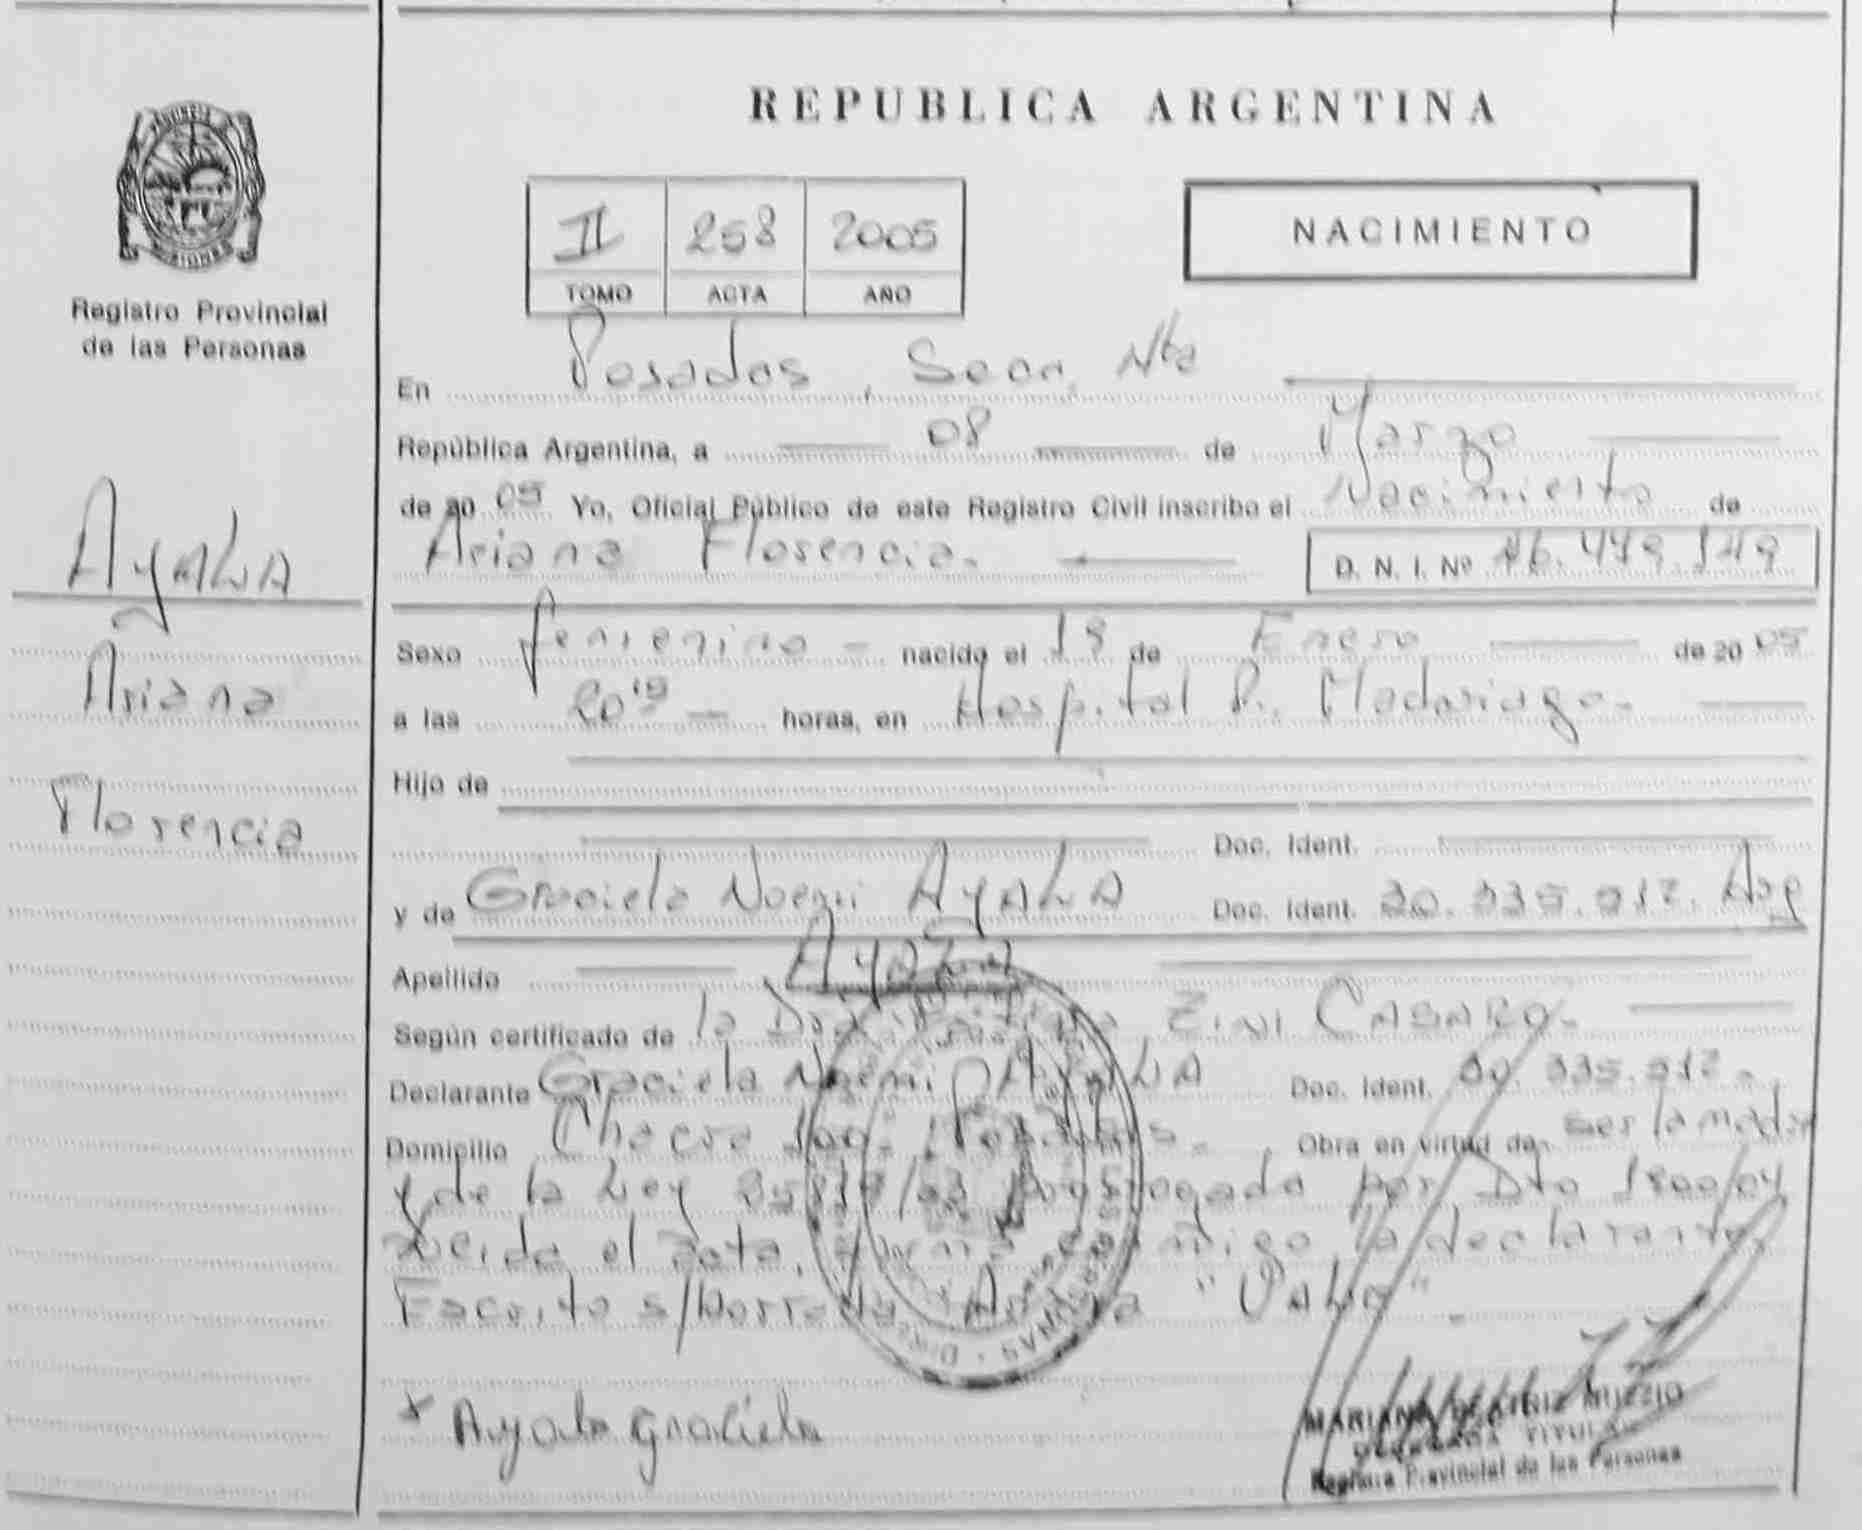 REPUBLICA ARGENTINA
II 258 2005
TOMO ACTA AÑO
NACIMIENTO
Registro Provincial
de las Personas
AyALA
Ariana
Florencia
En Posadas, Secc. Nta
República Argentina, a 08 de Marzo
de 20 05 Yo, Oficial Público de este Registro Civil inscribo el Nacimiento de
Ariana Florencia.
D. N. I. Nº 46.479.149
Sexo femenino - nacido el 19 de Enero de 20 05
a las 20 15 - horas, en Hospital R. Madariaga.
Hijo de
Doc. Ident.
y de Graciela Noemi AyALA Doc. Ident. 30.335.917. Arg
Apellido Ayala
Según certificado de la Dra. ZINI CASARO.
Declarante Graciela Noemi AyALA Doc. Ident. 30.335.917.
Domicilio Chacra Posadas. Obra en virtud de ser la madre
y de la Ley prorrogada por Dto 1900/04
Leida el acta, la declarante,
Escrito s/borrado "VALE".
x Ayala graciela
MARIANA BEATRIZ MUZZIO
DELEGADA TITULAR
Registro Provincial de las Personas